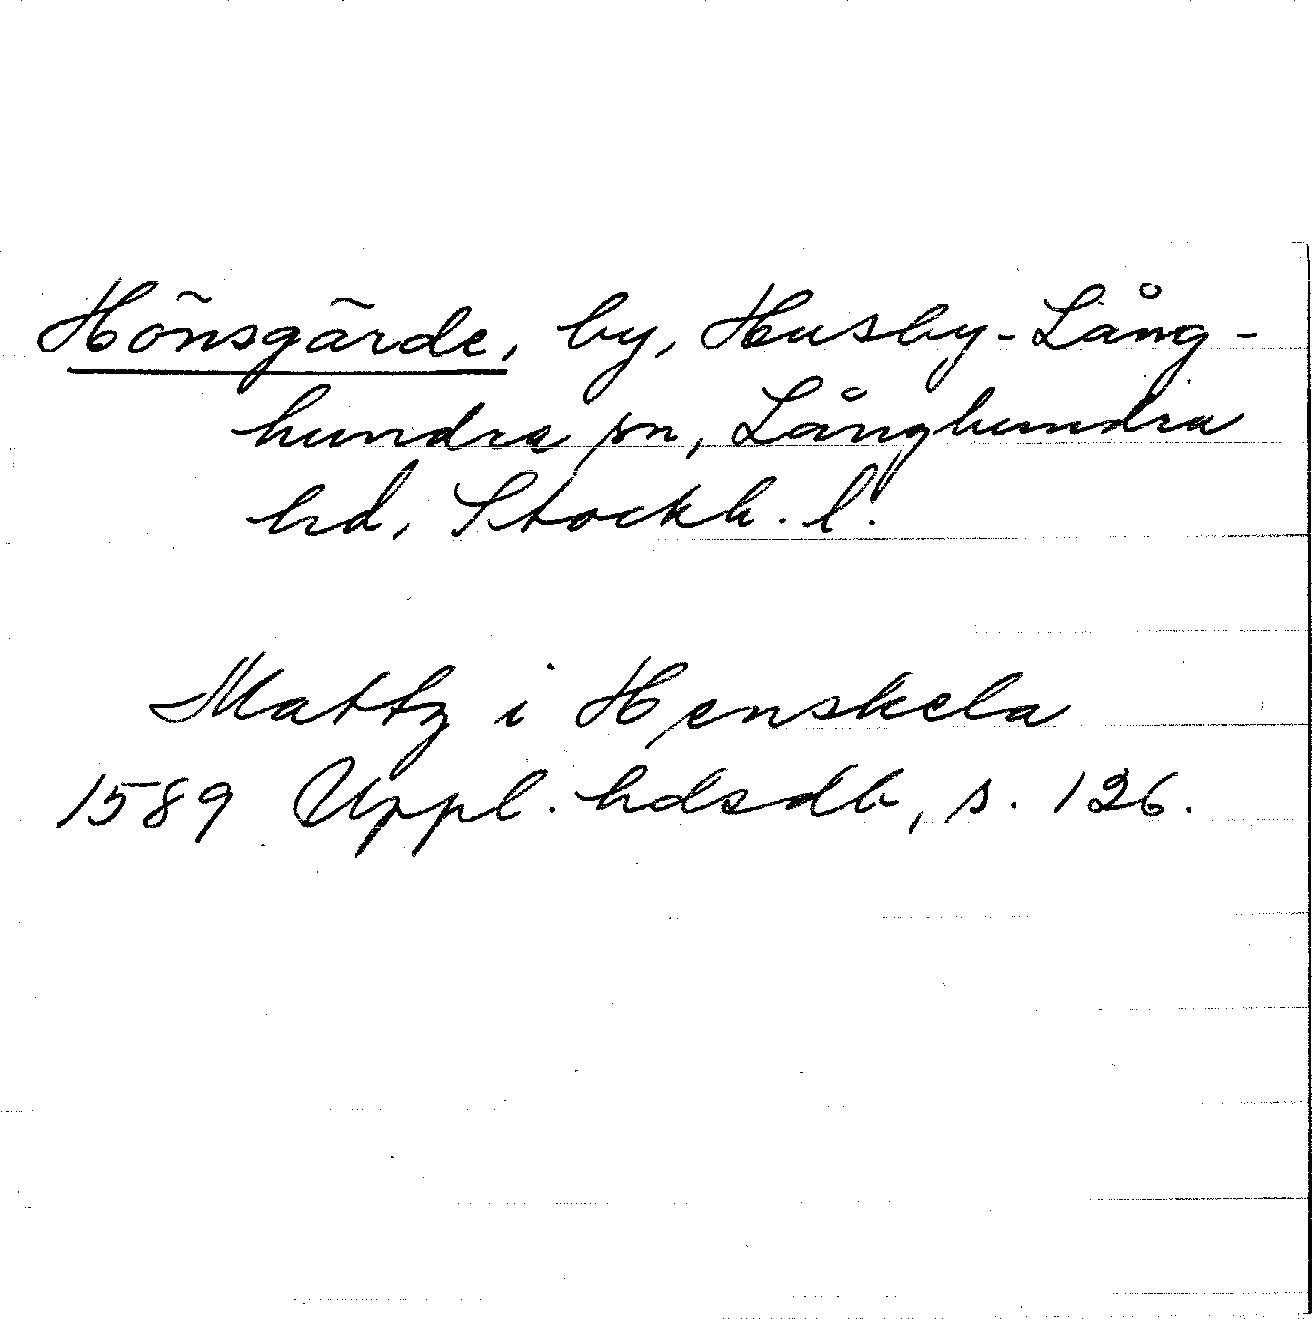 Hönsgärde, by, Husby-Lång-
hundra sn, Långhundra
hd, Stockh. l.
Mattz i Henskela
1589 Uppl. hdsdb, s. 126.